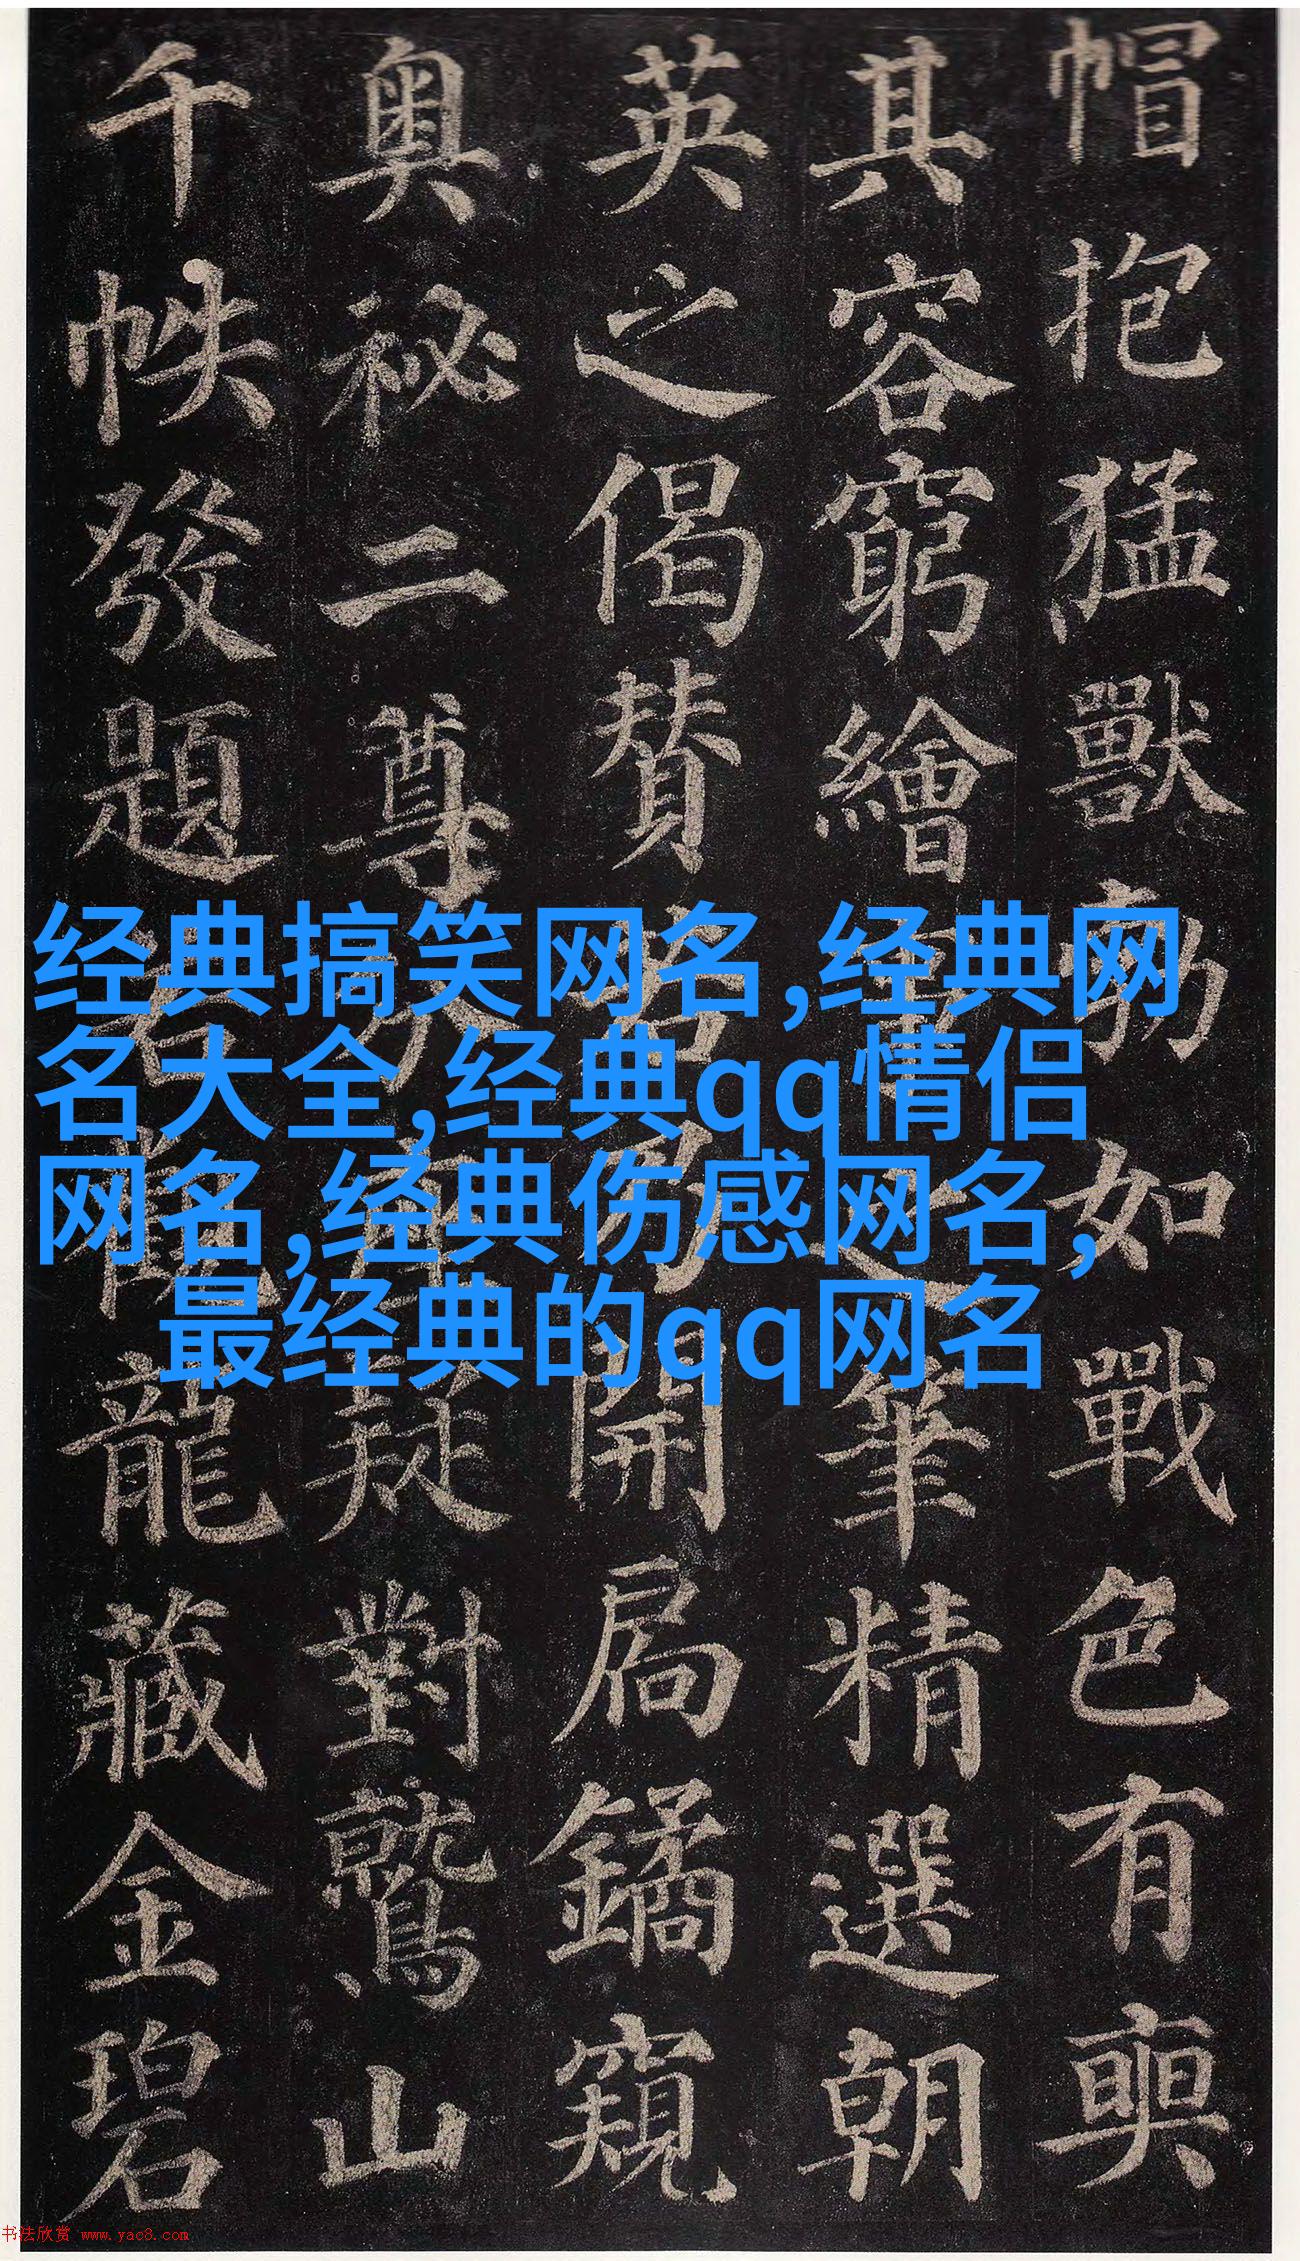 帽抱猛獸勃如戰色有奭
其容窮繪事之筆精選朝
英之偈贊若乃開扃鐍窺
奧祕二尊分座疑對鷲山
千帙發題若觀龍藏金碧
经典搞笑网名,经典网
名大全,经典qq情侣
网名,经典伤感网名,
最经典的qq网名
书法欣赏 www.yac8.com